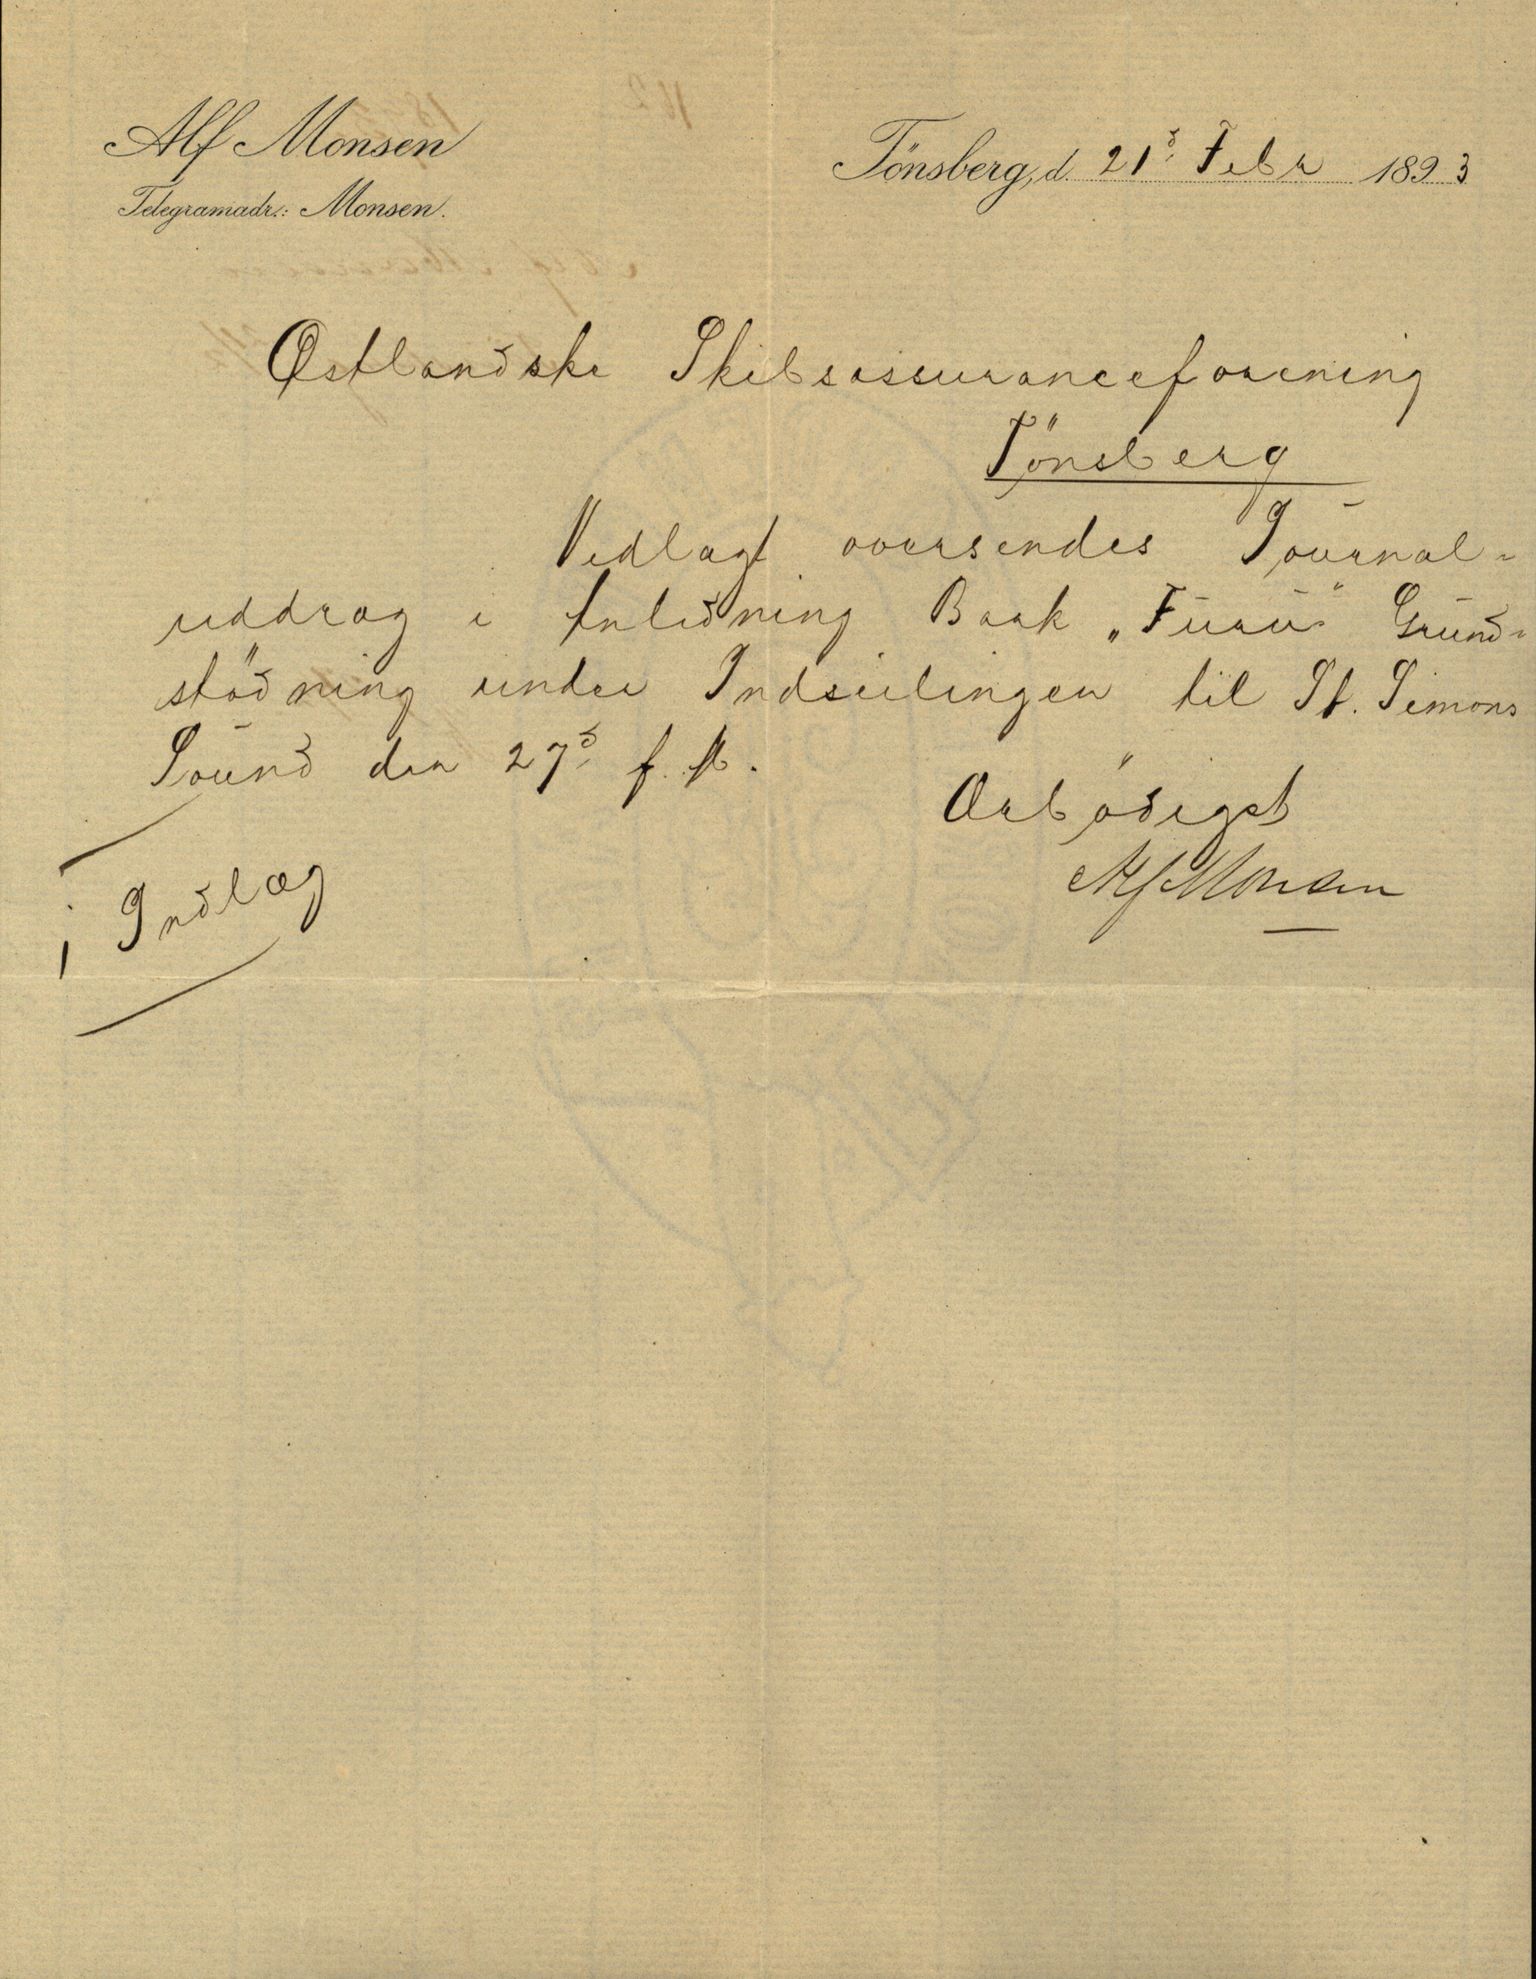 Alf Monsen
Telegramadr.: Monsen.
Tönsberg, d. 21d Febr 1893
Østlandske Skibsassuranceforening
Tönsberg
Vedlagt oversendes Journal-
uddrag i Anledning Bark „Furu" Grund-
stödning under Indseilingen til St. Simons
Sound den 27d f. M.
Ærbödigst
Alf Monsen
1 Indlæg